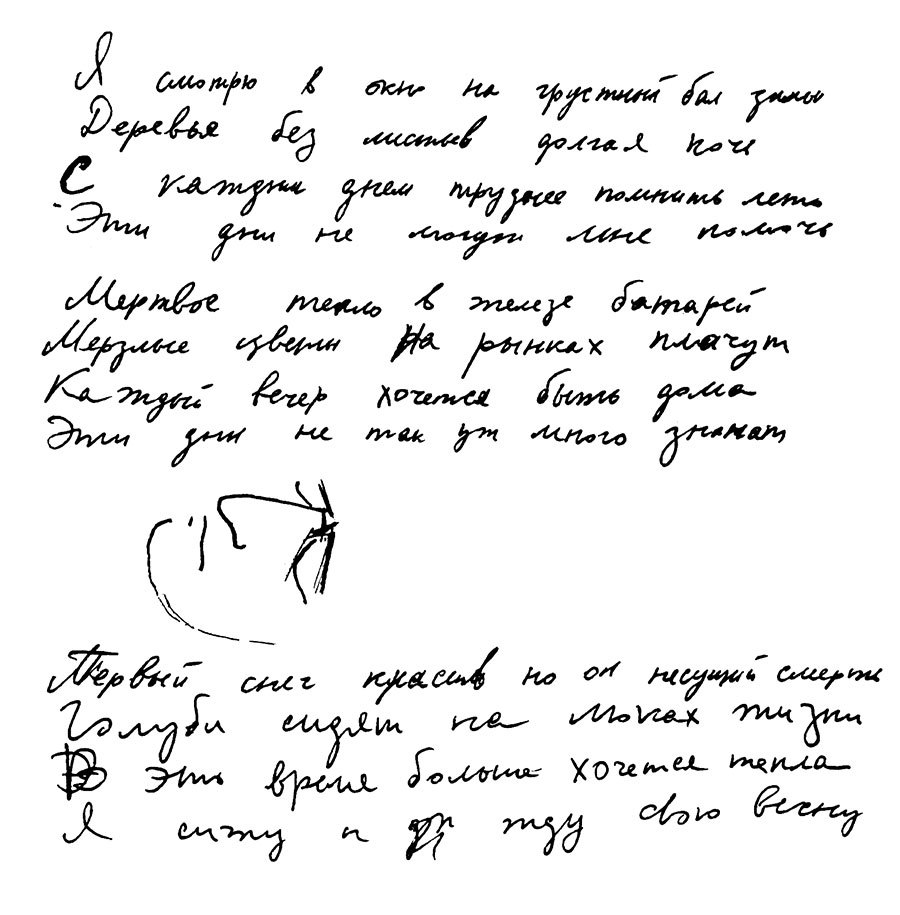 Я смотрю в окно на грустный бал зимы
Деревья без листьев долгая ноче
С каждым днем труднее помнить лето
Эти дни не могут мне помочь
Мертвое тепло в железе батарей
Мерзлые цветы на рынках плачут
Каждый вечер хочется быть дома
Эти дни не так уж много значат
Первый снег красив но он несущий смерть
Голуби сидят на люках жизни
В это время больше хочется тепла
Я сижу и жду свою весну